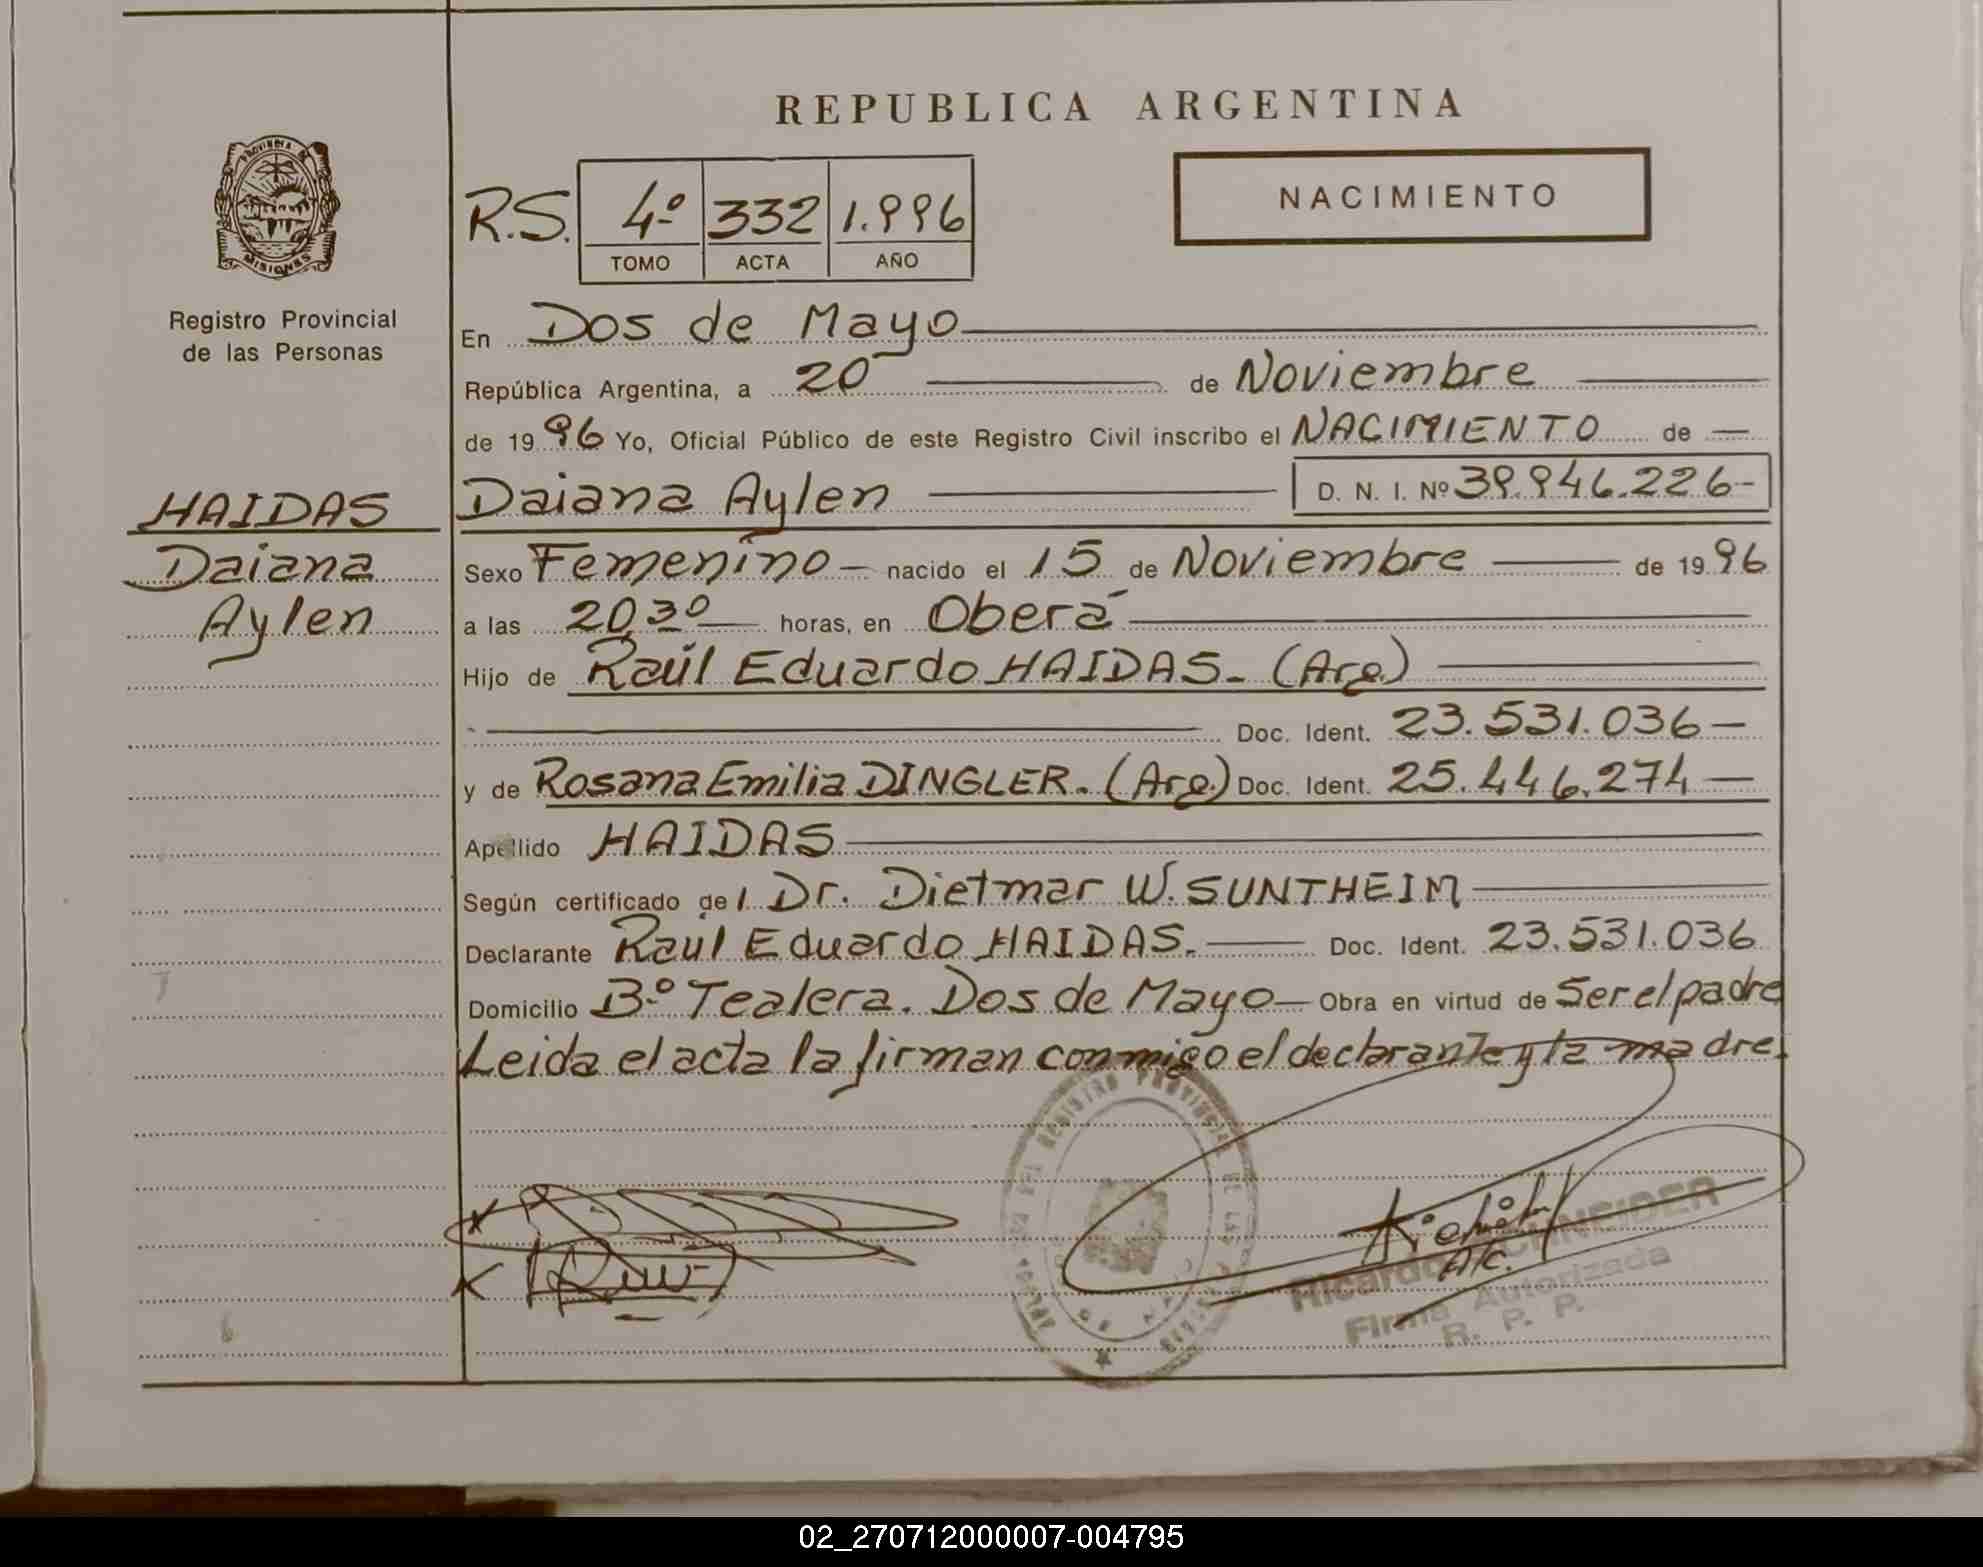 REPUBLICA ARGENTINA
PROVINCIA DE
MISIONES
Registro Provincial
de las Personas
R.S. 4º 332 1.996
TOMO ACTA AÑO
NACIMIENTO
En Dos de Mayo
República Argentina, a 20 de Noviembre
de 1996 Yo, Oficial Público de este Registro Civil inscribo el NACIMIENTO de
HAIDAS
Daiana
Aylen
Daiana Aylen D. N. I. Nº 39.946.226-
Sexo Femenino - nacido el 15 de Noviembre de 1996
a las 20,30 horas, en Oberá
Hijo de Raúl Eduardo HAIDAS. (Arg.)
Doc. Ident. 23.531.036
y de Rosana Emilia DINGLER. (Arg.) Doc. Ident. 25.446.274
Apellido HAIDAS
Según certificado del Dr. Dietmar W. SUNTHEIM
Declarante Raúl Eduardo HAIDAS. Doc. Ident. 23.531.036
Domicilio Bº Tealera. Dos de Mayo Obra en virtud de Ser el padre
Leida el acta la firman conmigo el declarante y la madre.
Ricardo SCHNEIDER
A/c.
Firma Autorizada
R. P. P.
02_270712000007-004795